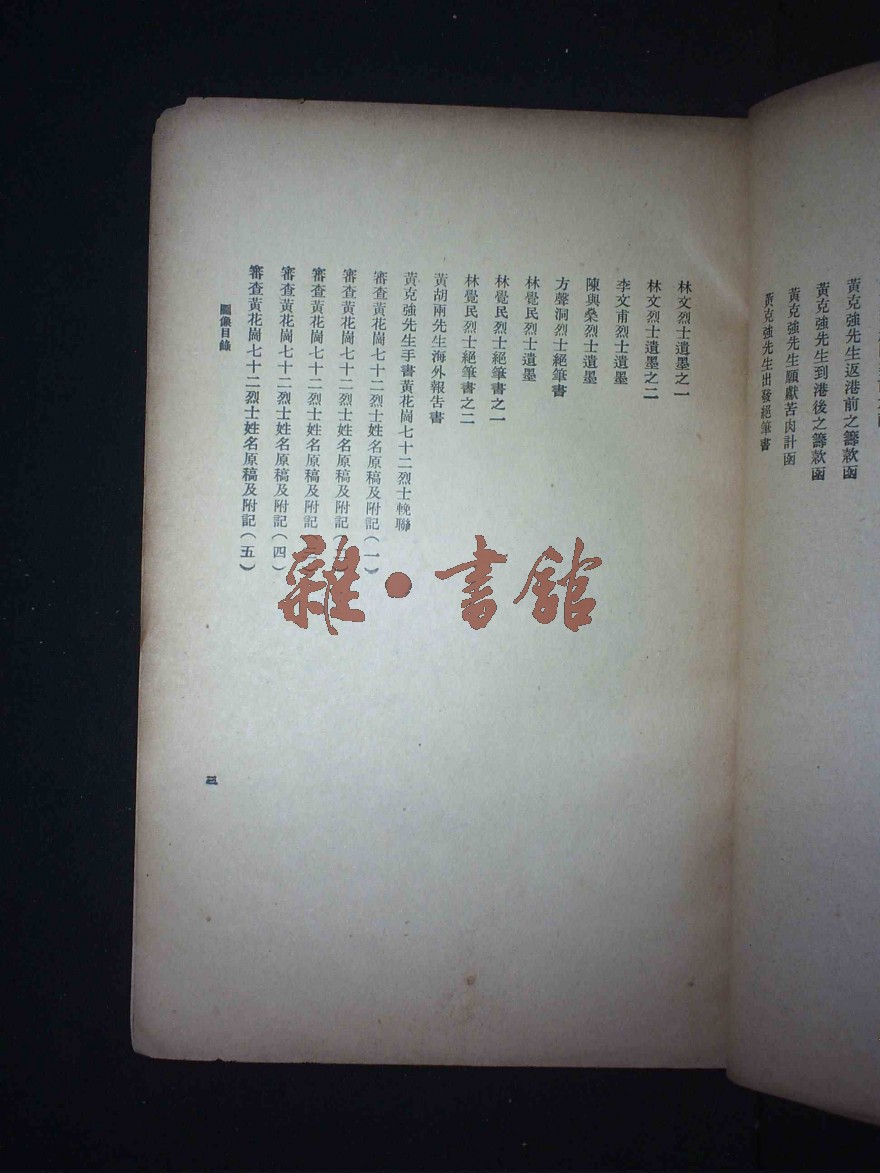 黃克強先生返港前之籌款函
黃克強先生到港後之籌款函
黃克強先生願獻苦肉計函
黃克強先生出發絕筆書
林文烈士遺墨之一
林文烈士遺墨之二
李文甫烈士遺墨
陳與燊烈士遺墨
方聲洞烈士絕筆書
林覺民烈士遺墨
林覺民烈士絕筆書之一
林覺民烈士絕筆書之二
黃胡兩先生海外報告書
黃克強先生手書黃花崗七十二烈士輓聯
審查黃花崗七十二烈士姓名原稿及附記(一)
審查黃花崗七十二烈士姓名原稿及附記
審查黃花崗七十二烈士姓名原稿及附記
審查黃花崗七十二烈士姓名原稿及附記(四)
審查黃花崗七十二烈士姓名原稿及附記(五)
圖像目錄
三
雜·書館